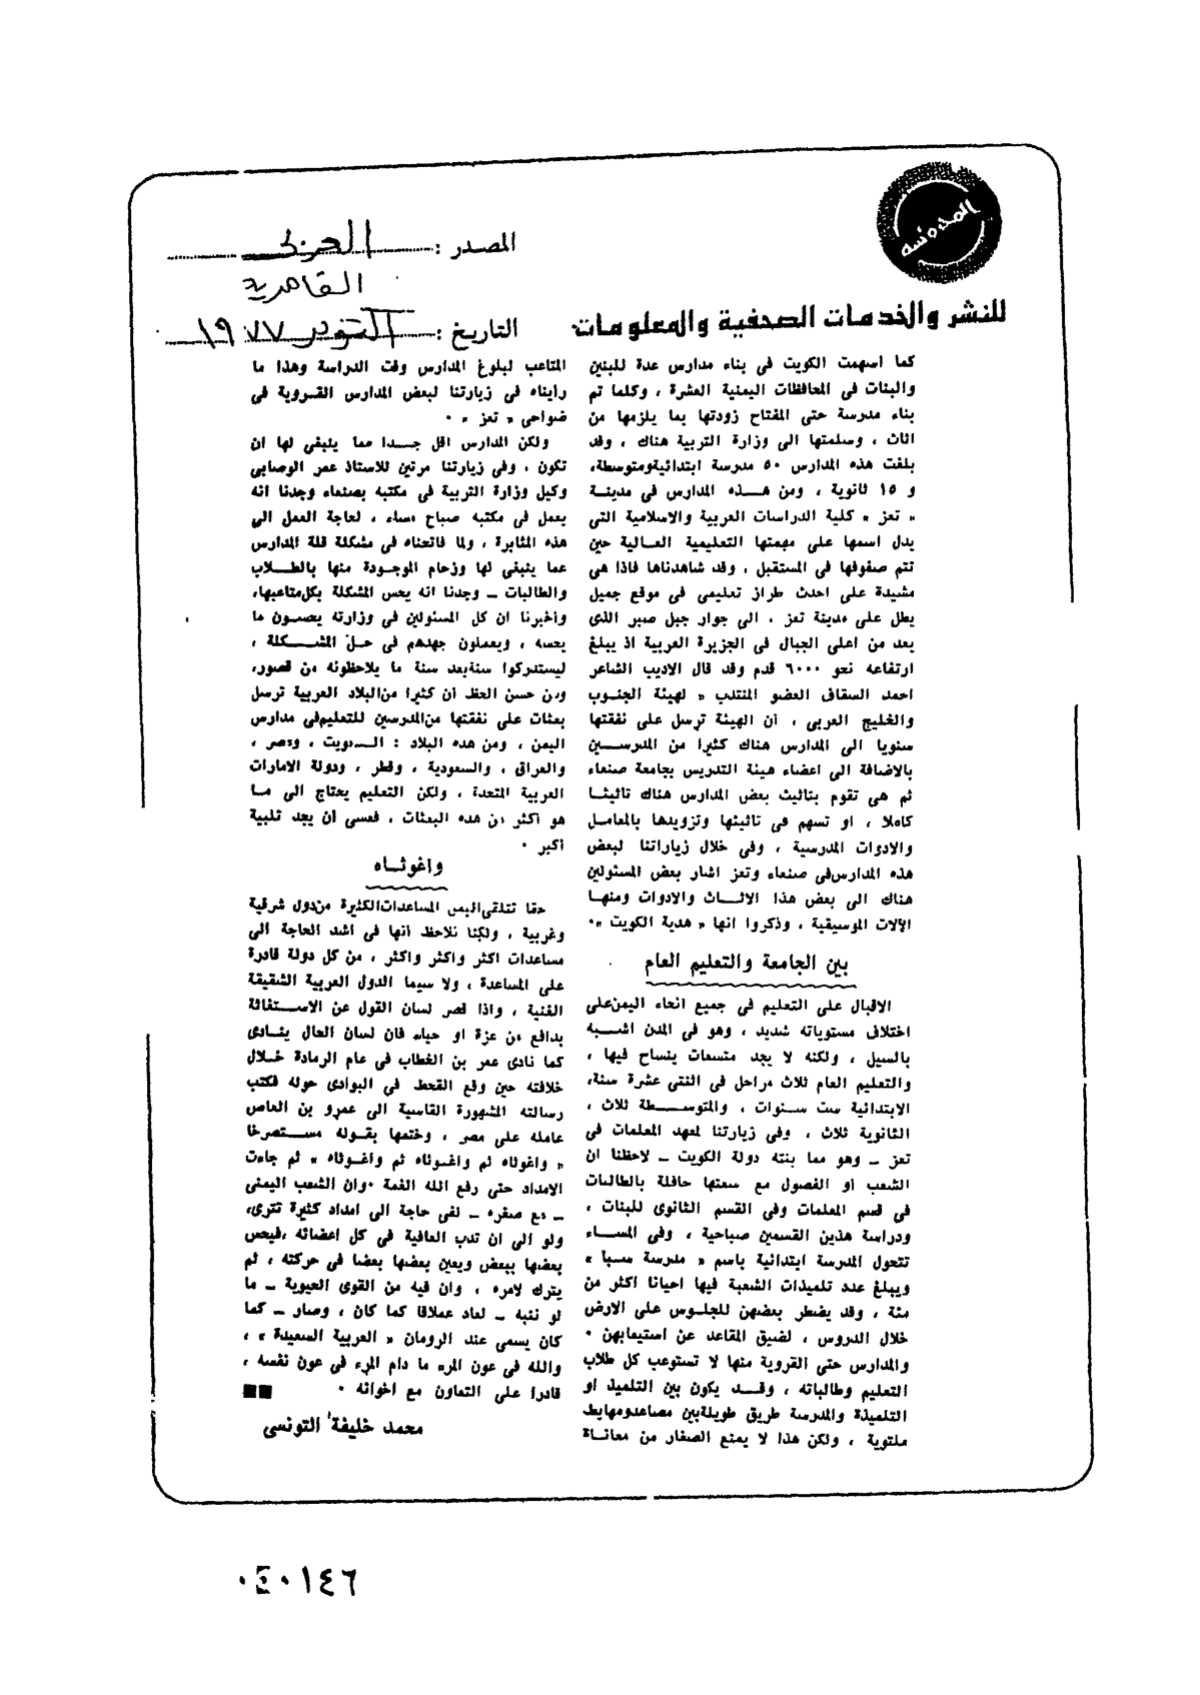 المدوسه
للنشر والخدمات الصحفية والمعلومات
المصدر : العربي
القاهرية
التاريخ : اكتوبر ١٩٧٧
كما اسهمت الكويت فى بناء مدارس عدة للبنين
والبنات فى المحافظات اليمنية العشرة ، وكلما تم
بناء مدرسة حتى المفتاح زودتها بما يلزمها من
اثاث ، وسلمتها الى وزارة التربية هناك ، وقد
بلغت هذه المدارس ٥٠ مدرسة ابتدائية ومتوسطة،
و ١٥ ثانوية ، ومن هذه المدارس فى مدينة
« تعز » كلية الدراسات العربية والاسلامية التى
يدل اسمها على مهمتها التعليمية العالية حين
تتم صفوفها فى المستقبل ، وقد شاهدناها فاذا هى
مشيدة على احدث طراز تعليمى فى موقع جميل
يطل على مدينة تعز ، الى جوار جبل صبر الذى
يعد من اعلى الجبال فى الجزيرة العربية اذ يبلغ
ارتفاعه نحو ٦٠٠٠ قدم وقد قال الاديب الشاعر
احمد السقاف العضو المنتدب « لهيئة الجنوب
والخليج العربى ، ان الهيئة ترسل على نفقتها
سنويا الى المدارس هناك كثيرا من المدرسين
بالاضافة الى اعضاء هيئة التدريس بجامعة صنعاء
ثم هى تقوم بتاثيث بعض المدارس هناك تاثيثا
كاملا ، او تسهم فى تاثيثها وتزويدها بالمعامل
والادوات المدرسية ، وفى خلال زياراتنا لبعض
هذه المدارس فى صنعاء وتعز اشار بعض المسئولين
هناك الى بعض هذا الاثاث والادوات ومنها
الآلات الموسيقية ، وذكروا انها « هدية الكويت »٠
بين الجامعة والتعليم العام
الاقبال على التعليم فى جميع انحاء اليمن على
اختلاف مستوياته شديد ، وهو فى المدن اشبه
بالسيل ، ولكنه لا يجد متسعات ينساح فيها ،
والتعليم العام ثلاث مراحل فى اثنتى عشرة سنة،
الابتدائية ست سنوات ، والمتوسطة ثلاث ،
الثانوية ثلاث ، وفى زيارتنا لمعهد المعلمات فى
تعز ــ وهو مما بنته دولة الكويت ــ لاحظنا ان
الشعب او الفصول مع سعتها حافلة بالطالبات
فى قسم المعلمات وفى القسم الثانوى للبنات ،
ودراسة هذين القسمين صباحية ، وفى المساء
تتحول المدرسة ابتدائية باسم « مدرسة سبا »
ويبلغ عدد تلميذات الشعبة فيها احيانا اكثر من
مئة ، وقد يضطر بعضهن للجلوس على الارض
خلال الدروس ، لضيق المقاعد عن استيعابهن ٠
والمدارس حتى القروية منها لا تستوعب كل طلاب
التعليم وطالباته ، وقد يكون بين التلميذ او
التلميذة والمدرسة طريق طويلة بين مصاعد ومهابط
ملتوية ، ولكن هذا لا يمنع الصغار من معاناة
المتاعب لبلوغ المدارس وقت الدراسة وهذا ما
رايناه فى زيارتنا لبعض المدارس القروية فى
ضواحى « تعز » ٠
ولكن المدارس اقل جدا مما ينبغى لها ان
تكون ، وفى زيارتنا مرتين للاستاذ عمر الوصابى
وكيل وزارة التربية فى مكتبه بصنعاء وجدنا انه
يعمل فى مكتبه صباح مساء ، لحاجة العمل الى
هذه المثابرة ، ولما فاتحناه فى مشكلة قلة المدارس
عما ينبغى لها وزحام الموجودة منها بالطلاب
والطالبات ــ وجدنا انه يحس المشكلة بكل متاعبها،
واخبرنا ان كل المسئولين فى وزارته يحسون ما
يحسه ، ويعملون جهدهم فى حل المشكلة ،
ليستدركوا سنة بعد سنة ما يلاحظونه من قصور،
ومن حسن الحظ ان كثيرا من البلاد العربية ترسل
بعثات على نفقتها من المدرسين للتعليم فى مدارس
اليمن ، ومن هذه البلاد : الكويت ، ومصر ،
والعراق ، والسعودية ، وقطر ، ودولة الامارات
العربية المتحدة ، ولكن التعليم يحتاج الى ما
هو اكثر من هذه البعثات ، فعسى ان يجد تلبية
اكبر ٠
واغوثاه
حقا تتلقى اليمن المساعدات الكثيرة من دول شرقية
وغربية ، ولكنا نلاحظ انها فى اشد الحاجة الى
مساعدات اكثر واكثر واكثر ، من كل دولة قادرة
على المساعدة ، ولا سيما الدول العربية الشقيقة
الغنية ، واذا قصر لسان القول عن الاستغاثة
بدافع من عزة او حياء فان لسان الحال ينادى
كما نادى عمر بن الخطاب فى عام الرمادة خلال
خلافته حين وقع القحط فى البوادى حوله فكتب
رسالته المشهورة القاسية الى عمرو بن العاص
عامله على مصر ، وختمها بقوله مستصرخا
« واغوثاه ثم واغوثاه ثم واغوثاه » ثم جاءت
الامداد حتى رفع الله الغمة ٠ وان الشعب اليمنى
ــ مع صغره ــ لفى حاجة الى امداد كثيرة تترى،
ولو الى ان تدب العافية فى كل اعضائه ، فيحس
بعضها ببعض ويعين بعضها بعضا فى حركته ، ثم
يترك لامره ، وان فيه من القوى الحيوية ــ ما
لو نبه ــ لعاد عملاقا كما كان ، وصار ــ كما
كان يسمى عند الرومان « العربية السعيدة » ،
والله فى عون المرء ما دام المرء فى عون نفسه ،
قادرا على التعاون مع اخوانه ٠
محمد خليفة التونسى